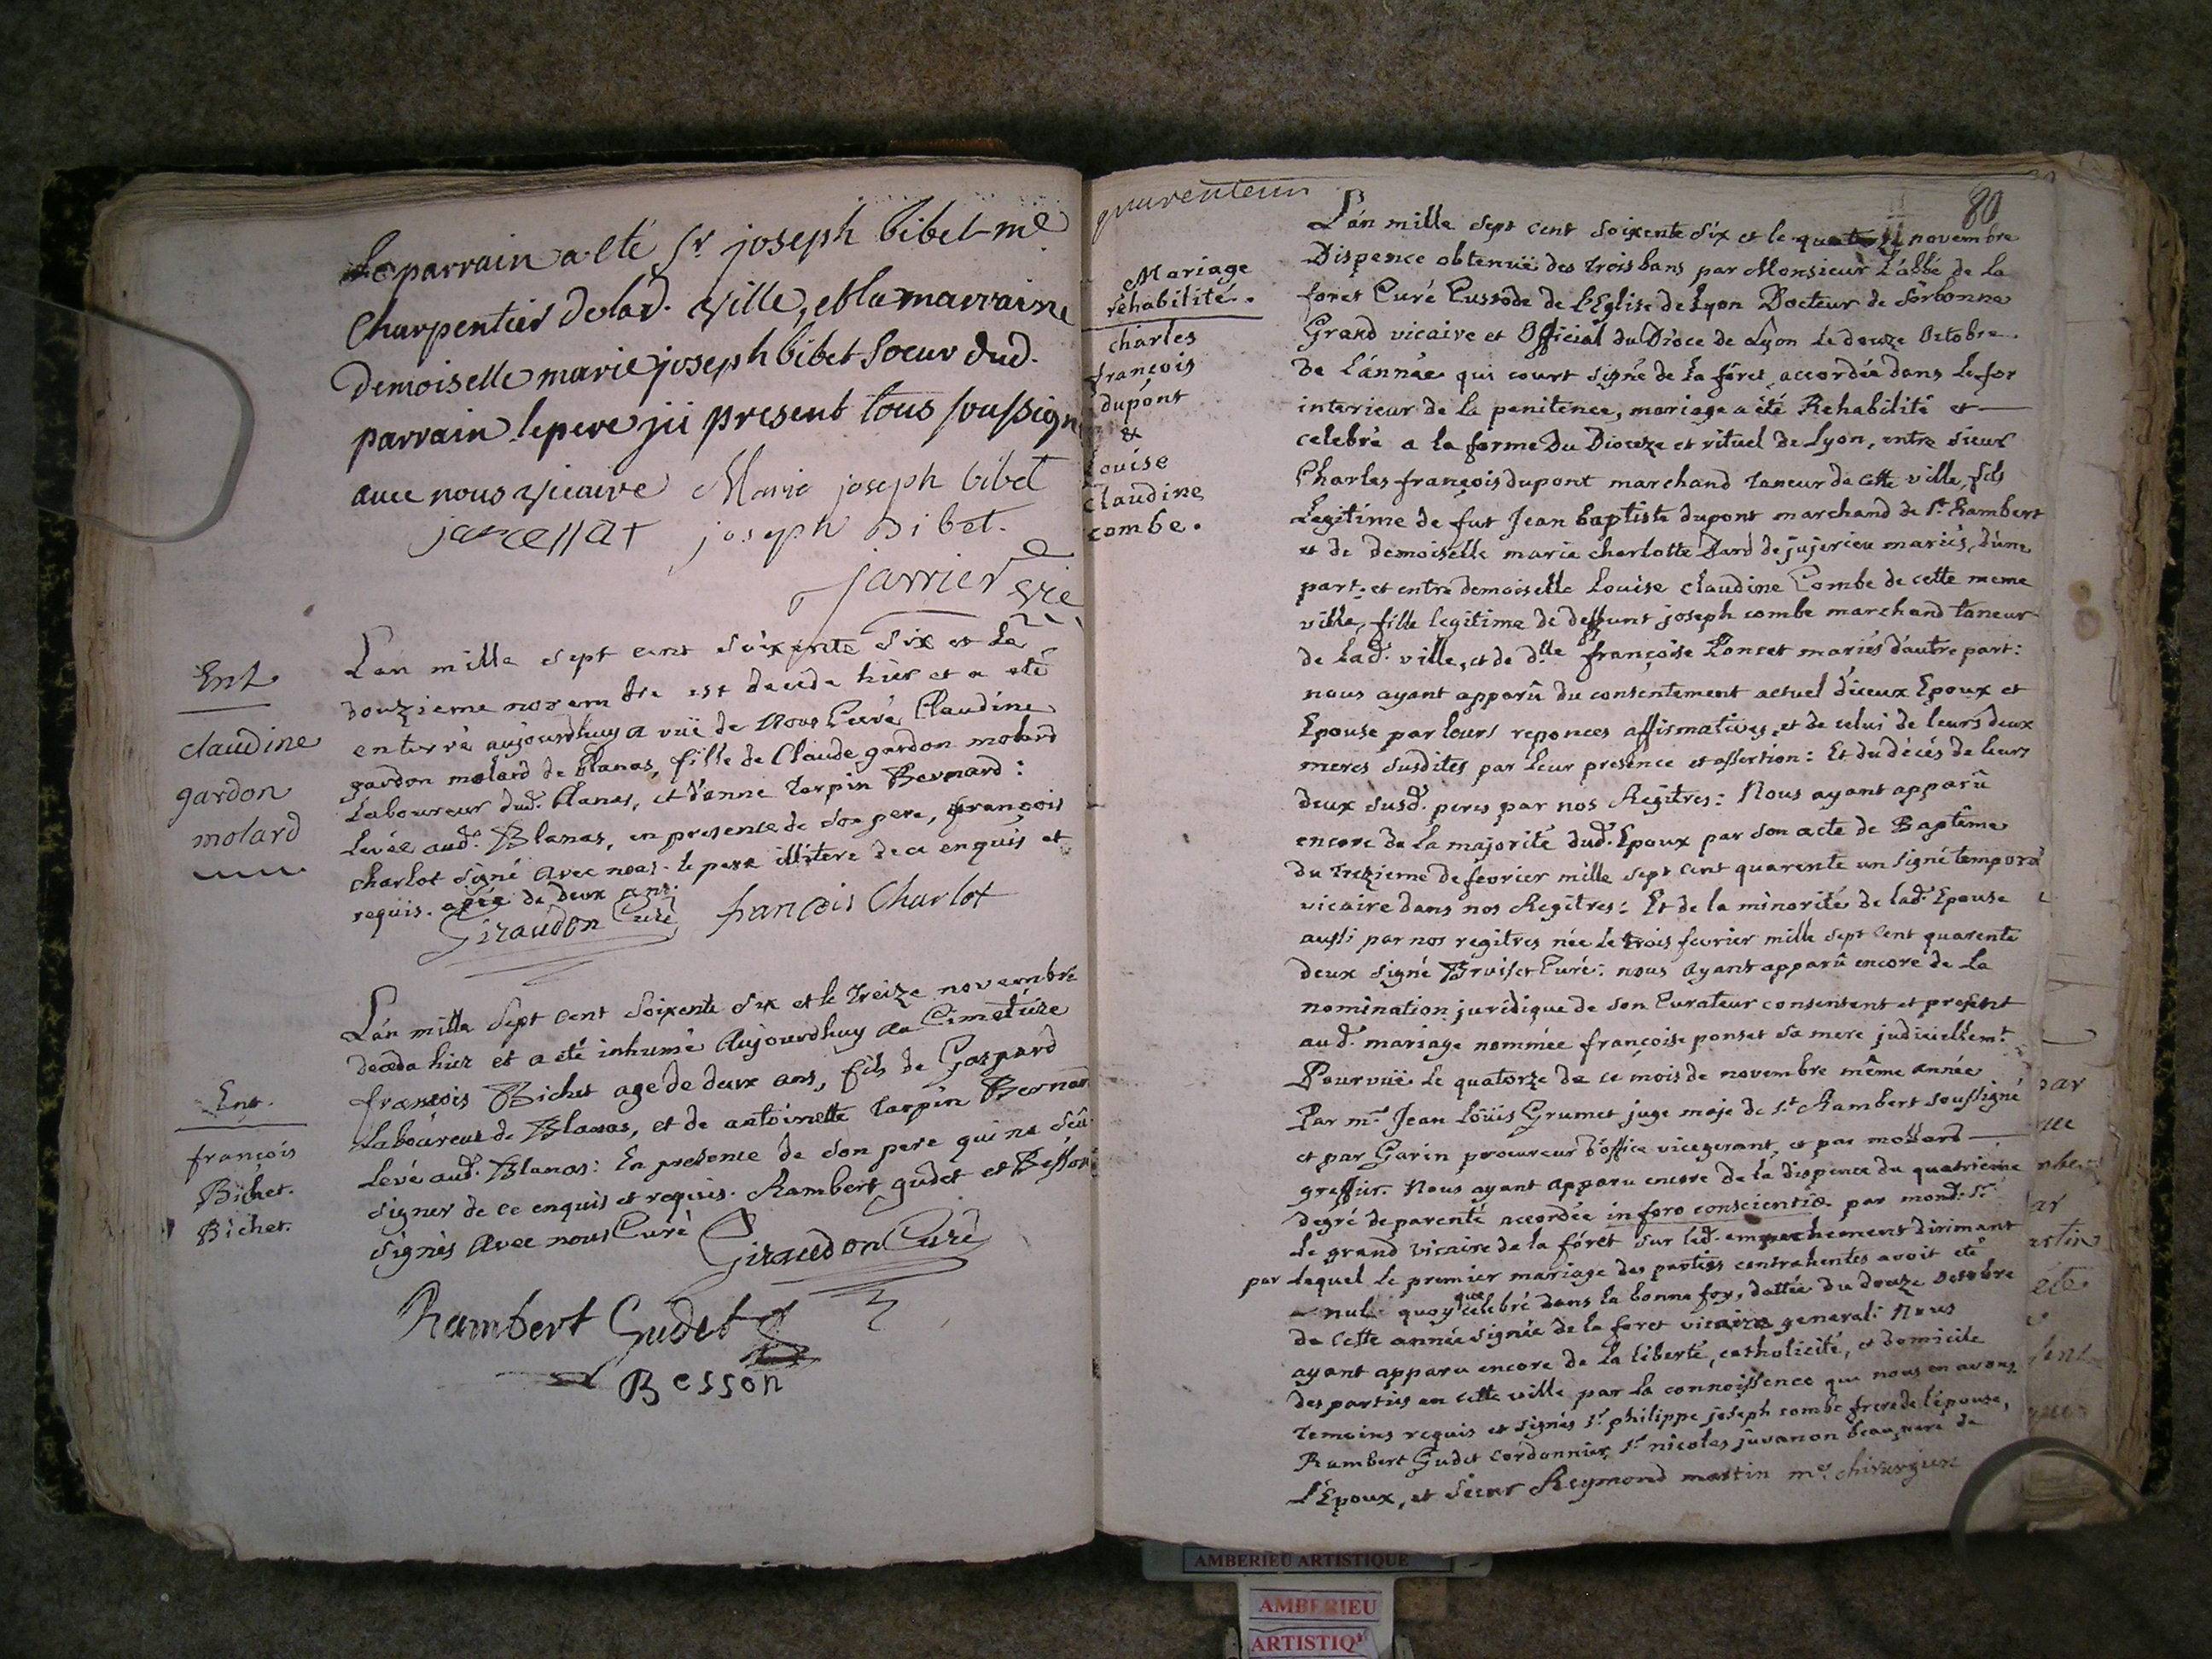 Le parrain a eté Sr joseph bibet me
charpentier de lad. ville, et la marraine
demoiselle marie joseph bibet soeur dud.
parrain le pere ici present tous soussign
avec nous vicaire Marie joseph bibet
jarcellat joseph Bibet.
jarrier vic
Ent.
claudine
gardon
molard
L'an mille sept cent soixente six et le
douzieme novembre est decede hier et a eté
enterré aujourdhuy a vuë de nous Curé Claudine
gardon molard de blanas, fille de Claude gardon molard
Laboureur dud. blanas, et d'anne tarpin Bernard:
Levée aud. Blanas, en presence de son pere, françois
charlot signé avec nous. le pere illitere de ce enquis et
requis. agée de deux ans.
Giraudon Curé françois Charlot
Ent.
françois
Bichet.
Bichet.
L'an mille sept cent soixente six et le treize novembre
deceda hier et a été inhumé Aujourdhuy au Cimetiere
françois Bichet age de deux ans, fils de Gaspard
Laboureur de Blanas, et de antoinette tarpin Bernar
Levé aud. Blanas: En presence de son pere qui ne sçû
signer de ce enquis et requis. Rambert gudet et Besson
signés avec nous Curé Giraudon Curé
Rambert Gudet
Besson
quarenteun
80
Mariage
réhabilité.
charles
françois
dupont
&
louise
claudine
combe.
L'an mille sept cent soixente six et le novembre
Dispence obtenuë des trois bans par Monsieur L'abbé de la
foret Curé Custode de l'Eglise de Lyon Docteur de Sorbonne
Grand vicaire et Official du Dioce de Lyon le douze Octobre
de L'année qui court signé de la foret accordée dans le for
interieur de la penitence, mariage a été Rehabilité et
celebré a la forme du Dioceze et rituel de Lyon, entre sieur
Charles françois dupont marchand taneur de cette ville, fils
Legitime de fut Jean baptiste dupont marchand de St Rambert
et de demoiselle marie charlotte Dard de jujerieu mariés, d'une
part: et entre demoiselle Louise claudine Combe de cette meme
ville, fille legitime de deffunt joseph combe marchand taneur
de lad. ville, et de dlle françoise Poncet mariés d'autre part:
nous ayant apparû du consentement actuel diceux Epoux et
Epouse par leurs reponces affirmatives, et de celui de leurs deux
meres susdites par leur presence et assertion: Et du décés de leurs
deux susd. peres par nos Regitres: Nous ayant apparû
encore de la majorité dud. Epoux par son acte de Baptême
du trezieme de fevrier mille sept cent quarente un signé temporal
vicaire dans nos Regitres: Et de la minorité de lad. Epouse
aussi par nos regitres née le trois fevrier mille sept cent quarente
deux signé Bruiset Curé: nous ayant apparû encore de la
nomination juridique de son Curateur consentent et present
aud. mariage nommée françoise ponset sa mere judiciellemt
Pourvuë le quatorze de ce mois de novembre même année
Par me Jean Loüis Grumet juge maje de St Rambert soussigné
et par Garin procureur d'office vicegerant, et par mollard
greffier. Nous ayant apparu encore de la dispence du quatrieme
degré de parenté accordée in foro conscientiæ par mond. Sr
Le grand vicaire de la fóret sur led. empechement dirimant
par lequel le premier mariage des parties contrahentes avoit eté
nul quoyque celebré dans la bonne foy, dattée du douze octobre
de cette année signée de la foret vicaire general: Nous
ayant apparu encore de la liberté, catholicité, et domicile
des parties en cette ville par la connoissence que nous en avons
temoins requis et signés Sr philippe joseph combe frere de l'épouse,
Rambert Gudet cordonnier, Sr nicolas juvanon beaufrere de
L'Epoux, et sieur Reymond martin me chirurgien
par
ar
eté
AMBERIEU ARTISTIQUE
AMBERIEU
ARTISTIQ